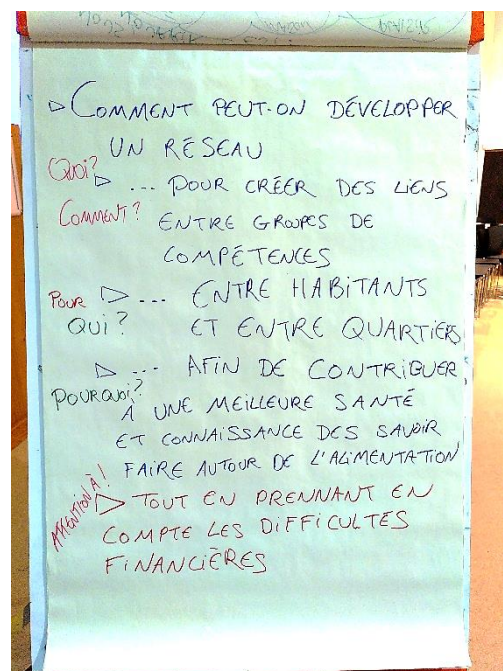 ▷ COMMENT PEUT-ON DÉVELOPPER
UN RÉSEAU
Quoi?
▷ ... POUR CRÉER DES LIENS
COMMENT?
ENTRE GROUPES DE
COMPÉTENCES
POUR QUI?
▷ ... ENTRE HABITANTS
ET ENTRE QUARTIERS
▷ ... AFIN DE CONTRIBUER
POURQUOI?
À UNE MEILLEURE SANTÉ
ET CONNAISSANCE DES SAVOIR
FAIRE AUTOUR DE L'ALIMENTATION
ATTENTION À!
▷ TOUT EN PRENNANT EN
COMPTE LES DIFFICULTÉS
FINANCIÈRES